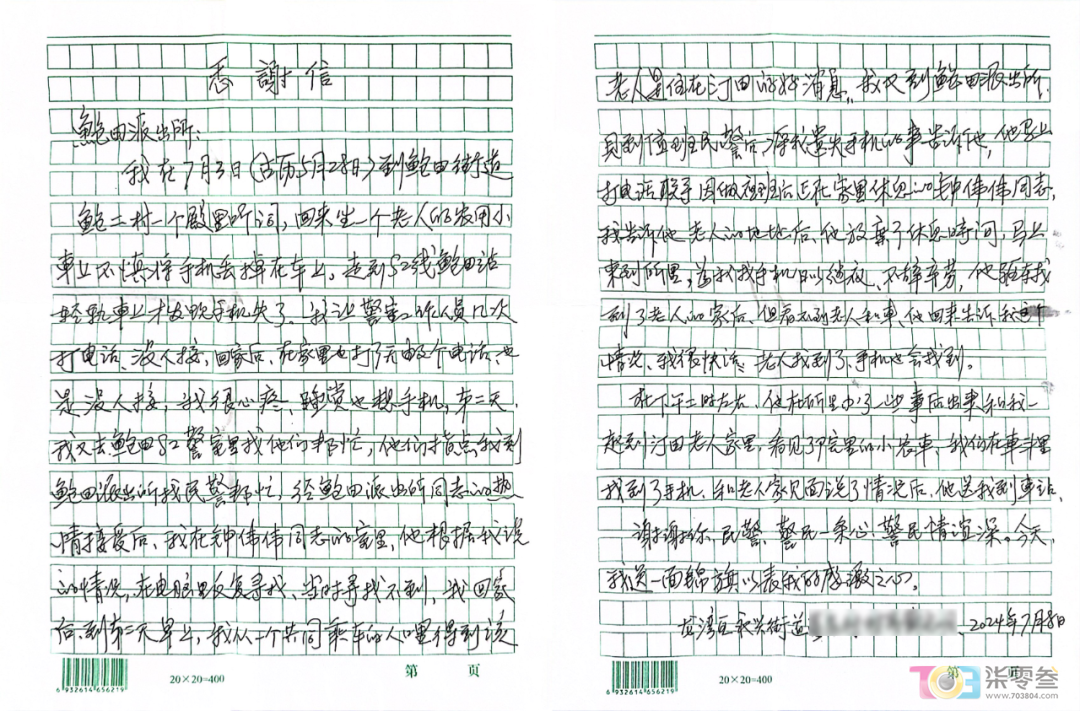 感謝信
鲍田派出所：
我在7月3日(古历5月28日)到鲍田街道
鲍二村一个殿里听词，回来坐一个老人的农用小
車上不慎将手机丢掉在车上，走到S2线鲍田站
轻軌車上才发现手机失了。我让警室工作人员几次
打电话、没人接，回家后、在家里也打了无数个电话、也
是没人接，我很心疼、睡觉也想手机，第二天
我又去鲍田S2警室里找他们帮忙，他们指点我到
鲍田派出所找民警帮忙，经鲍田派出所同志的热
情接受后、我在钟伟伟同志的室里、他根据我说
的情况，在电脑里反复寻找、当时寻找不到，我回家
后、到第三天早上，我从一个共同乘车的人哩得到该
老人是住在汀田的好消息，我又到鲍田派出所，
見到值班民警后，将我遗失手机的事告诉他，他马上
打电话联系因做夜班后正在家里休息的钟伟伟同志，
我告诉他老人的地址后、他放棄了休息時间，马上
来到所里，为我找手机日以继夜、不辞辛劳，他骑车找
到了老人的家后、但看不到老人和車、他回来告诉我
情况、我很快活、老人找到了、手机也会找到。
在下午二时左右，他在所里办了一些事后出来和我一
起到汀田老人家里，看见了院里的小农車、我们在車斗里
找到了手机、和老人家见面说了情况后、他送我到車站、
谢谢你、民警、警民一条心、警民情谊深。今天、
我送一面锦旗以表我的感激之心。
龙湾区永兴街道 、2024年7月8日
20×20=400
第 页
6 932614 656219
20×20=400
第 页
6 932614 656219
703 柒零叁
www.703804.com